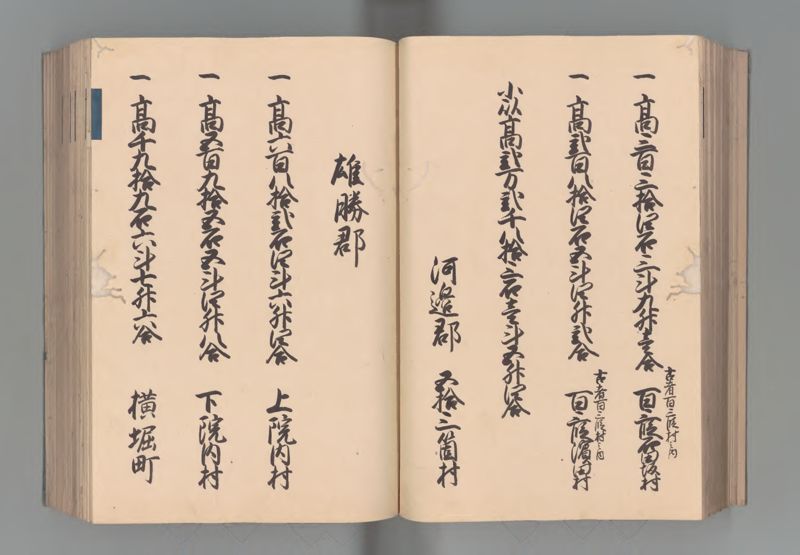 一 高三百三拾四石三斗九升壱合
古者百三段村之内
百三段
村
一 高弐百八拾四石五斗四升弐合
古者百三段村之内
百三段濱田村
小以高弐万弐千八拾三石壱斗五升四合
河邊郡 五拾三箇村
雄勝郡
一 高六百八拾弐石四斗六升四合 上院内村
一 高五百九拾五石五斗四升八合 下院内村
一 高千九拾九石六斗七升六合 横堀町